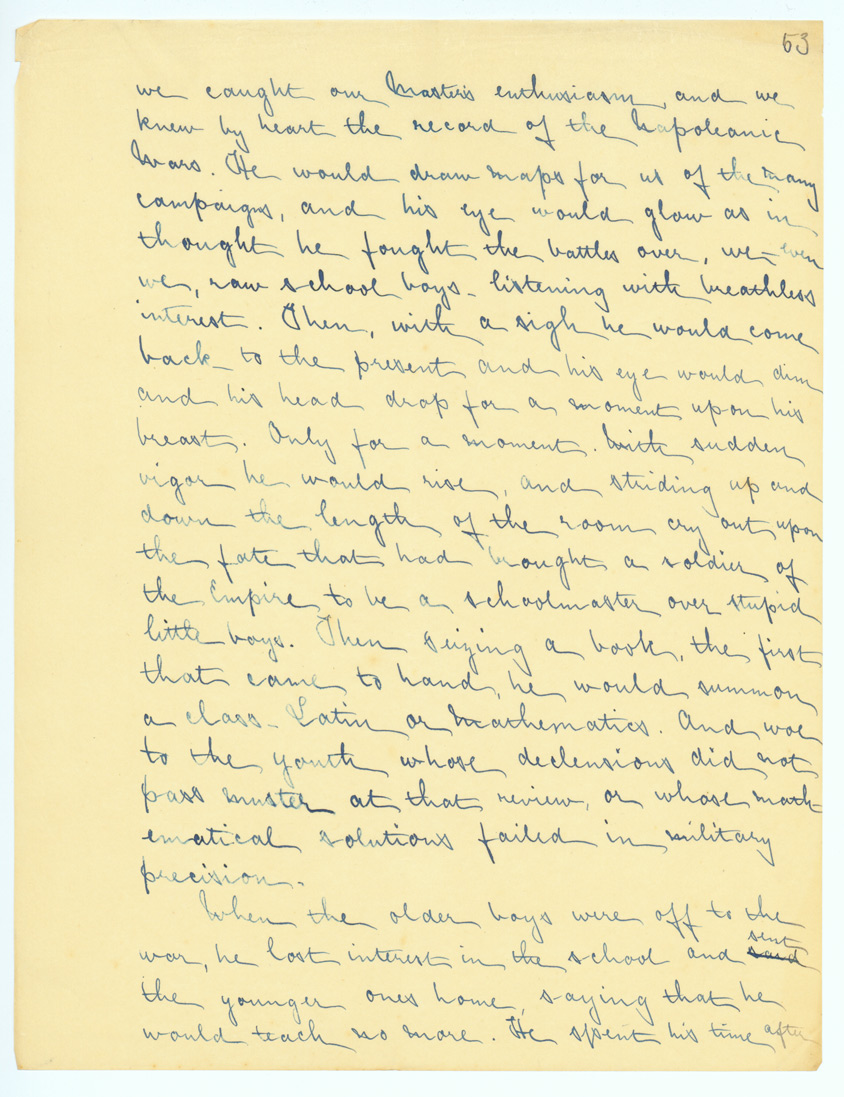 53
we caught our Master's enthusiasm, and we
knew by heart the record of the Napoleanic
Wars. He would draw maps for us of the many
campaigns, and his eye would glow as in
thought he fought the battles over, we - even
we, raw school boys - listening with breathless
interest. Then, with a sigh he would come
back to the present and his eye would dim
and his head drop for a moment upon his
breast. Only for a moment. With sudden
vigor he would rise, and striding up and
down the length of the room cry out upon
the fate that had brought a soldier of
the Empire to be a schoolmaster over stupid
little boys. Then seizing a book, the first
that came to hand, he would summon
a class - Latin or Mathematics. And woe
to the youth whose declensions did not
pass muster at that review, or whose math-
ematical solutions failed in military
precision.
When the older boys were off to the
war, he lost interest in the school and said sent
the younger ones home, saying that he
would teach no more. He spent his time after